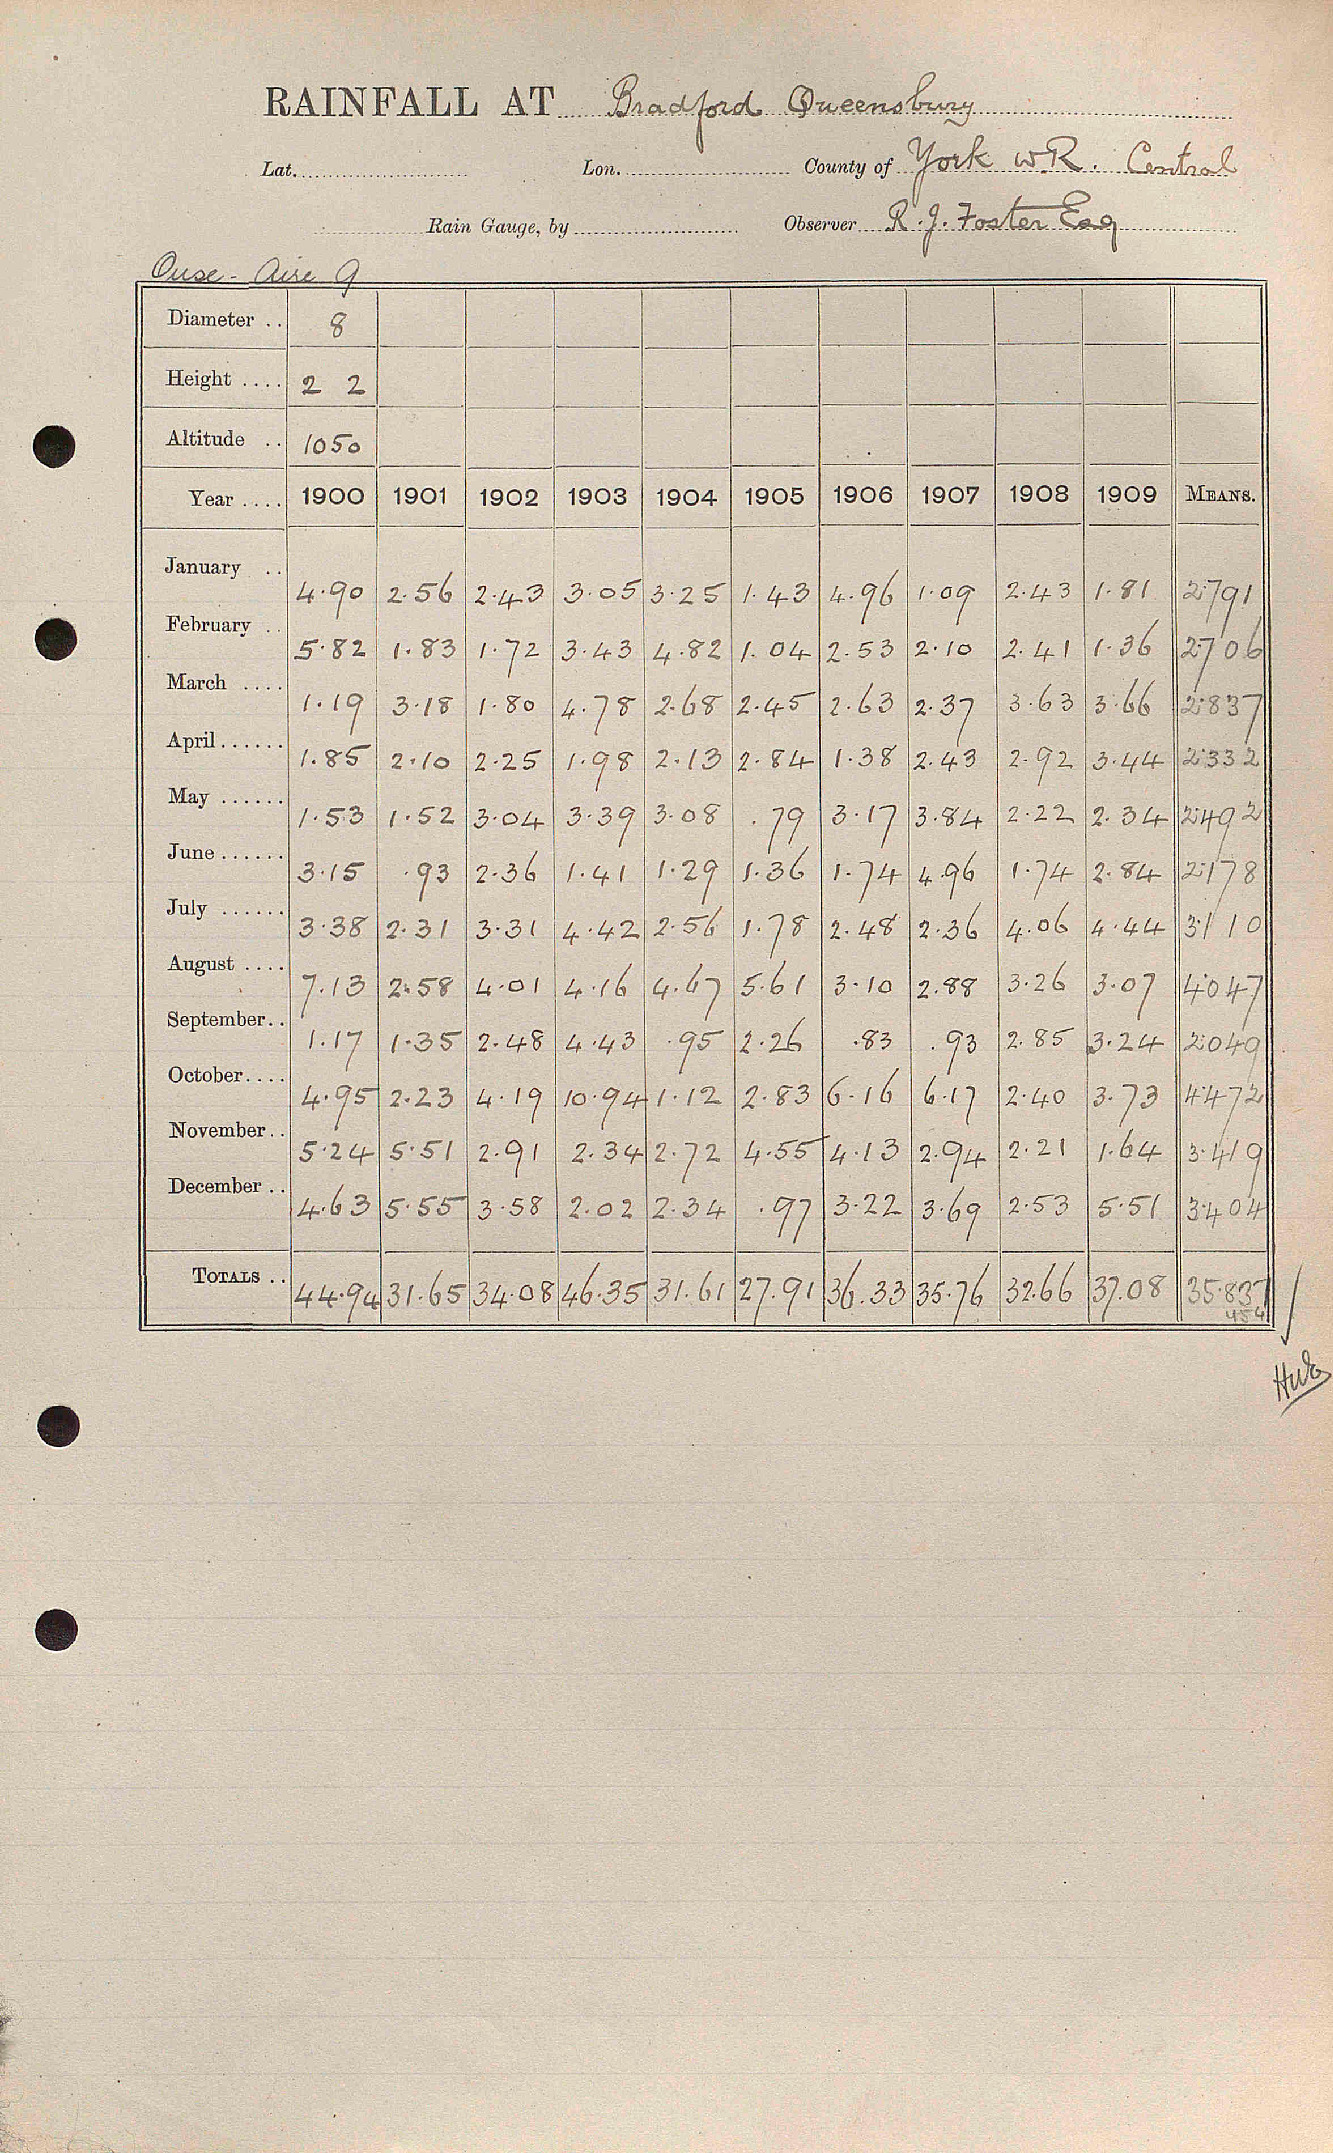 RAINFALL AT Bradford Queensbury
Lat. Lon. County of York W.R. Central
Rain Gauge, by Observer R. J. Foster Esq
Ouse - Aire 9
Diameter .. 8
Height .... 2 2
Altitude .. 1050
Year .... 1900 1901 1902 1903 1904 1905 1906 1907 1908 1909 MEANS.
January .. 4.90 2.56 2.43 3.05 3.25 1.43 4.96 1.09 2.43 1.81 2.791
February .. 5.82 1.83 1.72 3.43 4.82 1.04 2.53 2.10 2.41 1.36 2.706
March .... 1.19 3.18 1.80 4.78 2.68 2.45 2.63 2.37 3.63 3.66 2.837
April...... 1.85 2.10 2.25 1.98 2.13 2.84 1.38 2.43 2.92 3.44 2.332
May ...... 1.53 1.52 3.04 3.39 3.08 .79 3.17 3.84 2.22 2.34 2.492
June...... 3.15 .93 2.36 1.41 1.29 1.36 1.74 4.96 1.74 2.84 2.178
July ...... 3.38 2.31 3.31 4.42 2.56 1.78 2.48 2.36 4.06 4.44 3.110
August .... 7.13 2.58 4.01 4.16 4.67 5.61 3.10 2.88 3.26 3.07 4.047
September.. 1.17 1.35 2.48 4.43 .95 2.26 .83 .93 2.85 3.24 2.049
October.... 4.95 2.23 4.19 10.94 1.12 2.83 6.16 6.17 2.40 3.73 4.472
November.. 5.24 5.51 2.91 2.34 2.72 4.55 4.13 2.94 2.21 1.64 3.419
December .. 4.63 5.55 3.58 2.02 2.34 .97 3.22 3.69 2.53 5.51 3.404
TOTALS .. 44.94 31.65 34.08 46.35 31.61 27.91 36.33 35.76 32.66 37.08 35.837